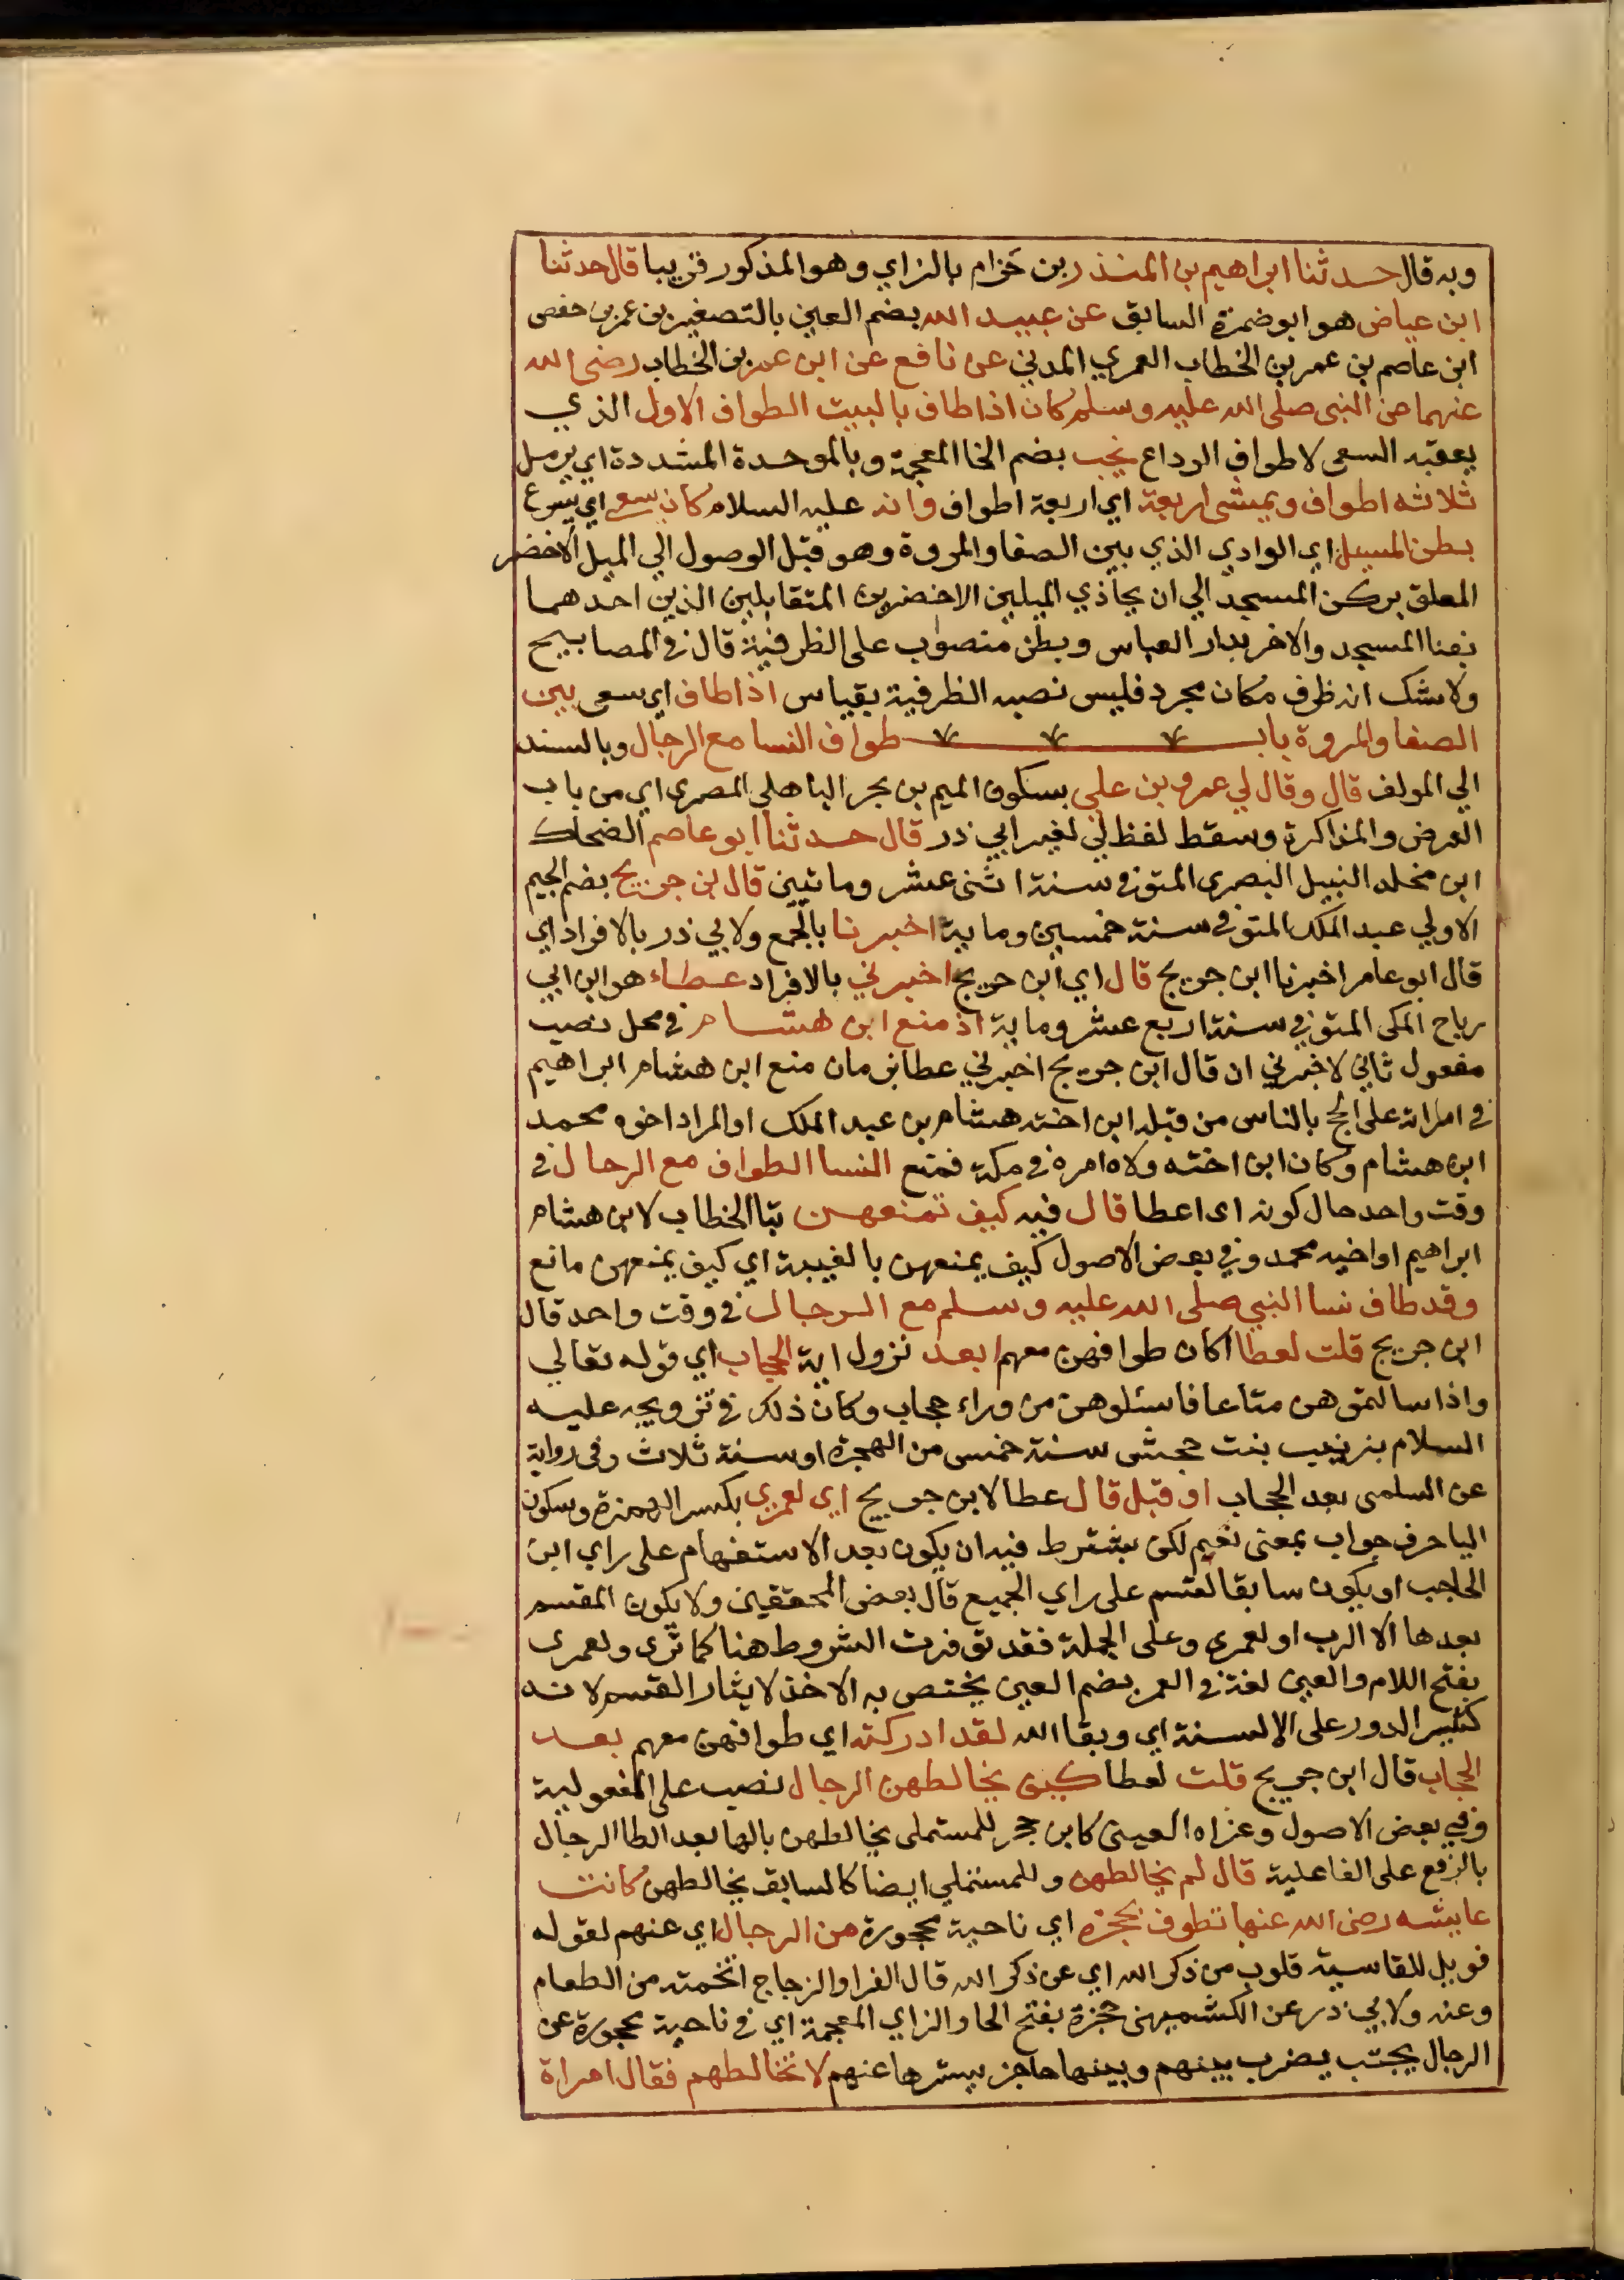 وبه قال حدثنا ابراهيم بن المنذر بن حزام بالزاي وهو المذكور قريبا قال حدثنا
ابن عياض هو ابو ضمرة السابق عن عبيد الله بضم العين بالتصغير بن عمر بن حفص
ابن عاصم بن عمر بن الخطاب العمري المدني عن نافع عن ابن عمر بن الخطاب رضى الله
عنهما من النبى صلى الله عليه وسلم كان اذا طاف بالبيت الطواف الاول الذي
يعقبه السعى لا طواف الوداع يخب بضم الخا المعجمة وبالموحدة المشددة اي يرمل
ثلاثه اطواف ويمشى اربعة اي اربعة اطواف وانه عليه السلام كان يسعى اي يسرع
بطن المسيل اي الوادي الذي بين الصفا والمروة وهو قبل الوصول الي الميل الاخضر
المعلق بركن المسجد الي ان يحاذي الميلين الاخضرين المتقابلين الذين احدهما
بفنا المسجد والاخر بدار العباس وبطن منصوب على الظرفية قال في المصابيح
ولاشك انه ظرف مكان مجرد فليس نصبه الظرفية بقياس اذا طاف اي سعى بين
الصفا والمروة باب طواف النسا مع الرجال وبالسند
الي المولف قال وقال لي عمرو بن علي بسكون الميم بن بحر الباهلي المصرى اي من باب
العرض والمذاكرة وسقط لفظ لي لغير ابي ذر قال حدثنا ابو عاصم الضحاك
ابن مخلد النبيل البصرى المتوفى سنة اثنى عشر ومايتين قال بن جريج بضم الجيم
الاولي عبد الملك المتوفى سنة خمسين وماية اخبرنا بالجمع ولابي ذر بالافراد اي
قال ابو عامر اخبرنا ابن جريج قال اي ابن جريج اخبرني بالافراد عطاء هو ابن ابي
رباح المكى المتوفي سنة اربع عشر وماية اذ منع ابن هشام في محل نصب
مفعول ثاني لاخبرني ان قال ابن جريج اخبرني عطا بزمان منع ابن هشام ابراهيم
في امراته على الحج بالناس من قبله ابن اخته هشام بن عبد الملك او المراد اخوه محمد
ابن هشام وكان ابن اخته ولاه امره في مكة فمنع النسا الطواف مع الرجال في
وقت واحد حال كونه اى اعطا قال فيه كيف تمنعهن بتا الخطاب لابن هشام
ابراهيم او اخيه محمد وفي بعض الاصول كيف يمنعهن بالغيبة اي كيف يمنعهن مانع
وقد طاف نسا النبي صلى الله عليه وسلم مع الرجال في وقت واحد قال
ابن جريج قلت لعطا اكان طوافهن معهم ابعد نزول اية الحجاب اي قوله تعالي
واذا سالتموهن متاعا فاسئلوهن من وراء حجاب وكان ذلك في تزويجه عليه
السلام بزينب بنت جحش سنة خمس من الهجرة او سنة ثلاث وفى رواية
عن السلمى بعد الحجاب او قبل قال عطا لابن جريج اي لعمري بكسر الهمزة وسكون
اليا حرف جواب بمعنى نعيم لكن يشترط فيه ان يكون بعد الاستفهام على راي ابن
الحاجب او يكون سابقا لقسم على راي الجميع قال بعض المحققين ولا يكون المقسم
بعدها الا الرب او لعمرى وعلى الجملة فقد توفرت الشروط هنا كما ترى ولعمرى
بفتح اللام والعين لغة في العمر بضم العين يختص به الاخذ لايثار القسم لانه
كثير الدور على الالسنة اي وبقا الله لقد ادركته اي طوافهن معهم بعد
الحجاب قال ابن جريج قلت لعطا كيف يخالطهن الرجال نصب على المفعولية
وفي بعض الاصول وعزاه العينى كابن حجر للمستملى يخالطهن بالها بعد الطا الرجال
بالرفع على الفاعلية قال لم يخالطهن وللمستملي ايضا كالسابق يخالطهن كانت
عايشه رضى الله عنها تطوف حجزه اي ناحية محجورة من الرجال اي عنهم لقوله
فويل للقاسية قلوب من ذكر الله اي عن ذكر الله قال الفرا والزجاج اتخمته من الطعام
وعنه ولابي ذر عن الكشميهنى حجزة بفتح الحا والزاي المعجمة اي في ناحية محجورة عن
الرجال يجتب يضرب بينهم وبينها حاجز يسترها عنهم لا تخالطهم فقال امراة